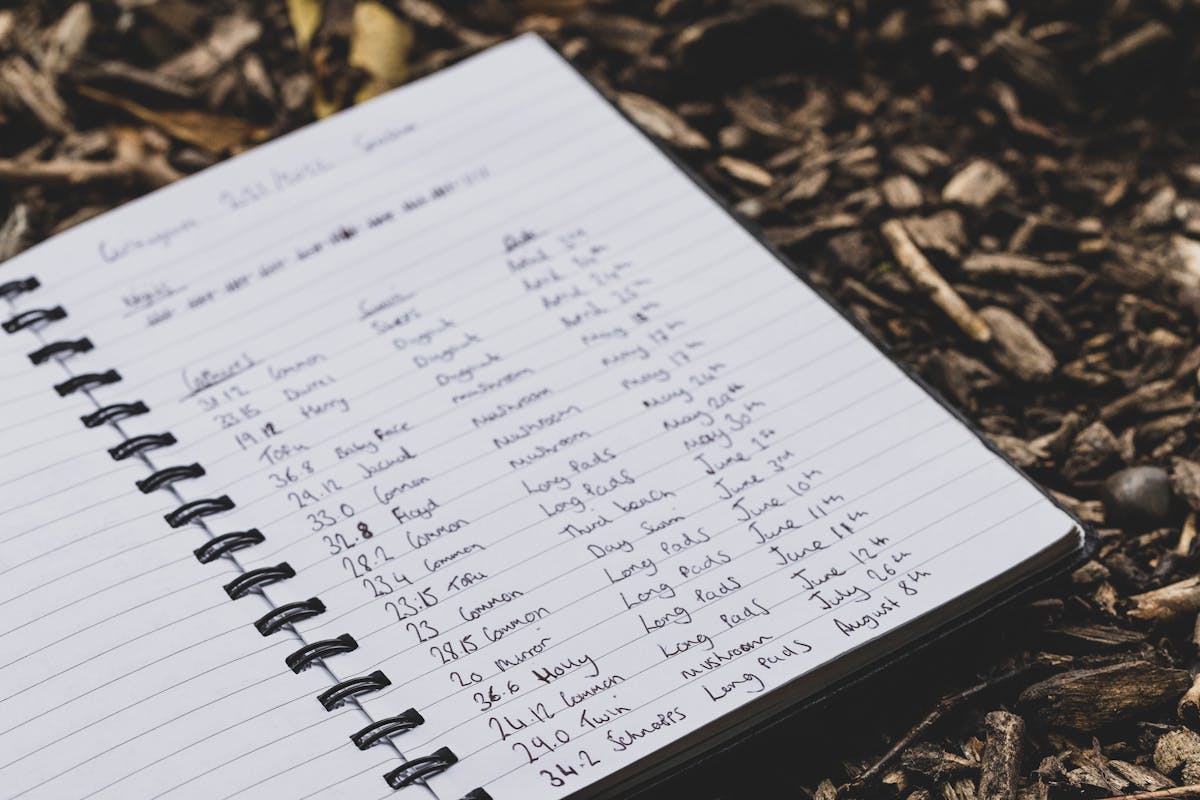 Nights
Captures Swim Date
31.12 Common April
33.15 Durrel Dugout April
19.12 Harry Dugout April 24th
Tofu Dugout April 25th
36.8 Baby Face mushroom May
29.12 mushroom May 17th
33.0 Common mushroom May 17th
32.8 Floyd mushroom May
28.2 Common Long Pads May 29th
23.4 Common Long Pads May 30th
23.15 Tofu Third beach June 1st
23 Common Day Swim June 3rd
28.15 Common Long Pads June 10th
20 Mirror Long Pads June 11th
36.6 Holly Long Pads June 11th
24.12 Common Long Pads June 12th
29.0 Twin mushroom July 26th
34.2 Schnapps Long Pads August 8th